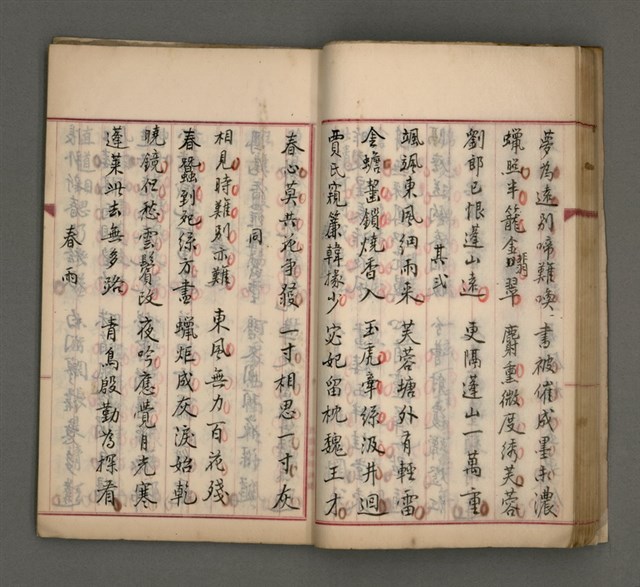 夢為遠別啼難喚 書被催成墨未濃
蠟照半籠金翡翠 麝熏微度綉芙蓉
劉郎已恨蓬山遠 更隔蓬山一萬重
其弍
颯颯東風細雨來 芙蓉塘外有輕雷
金蟾嚙鎖燒香入 玉虎牽絲汲井迴
賈氏窺簾韓掾少 宓妃留枕魏王才
春心莫共花爭發 一寸相思一寸灰
同
相見時難別亦難 東風無力百花殘
春蠶到死絲方盡 蠟炬成灰淚始乾
曉鏡但愁雲鬢改 夜吟應覺月光寒
蓬萊此去無多路 青鳥殷勤為探看
春雨